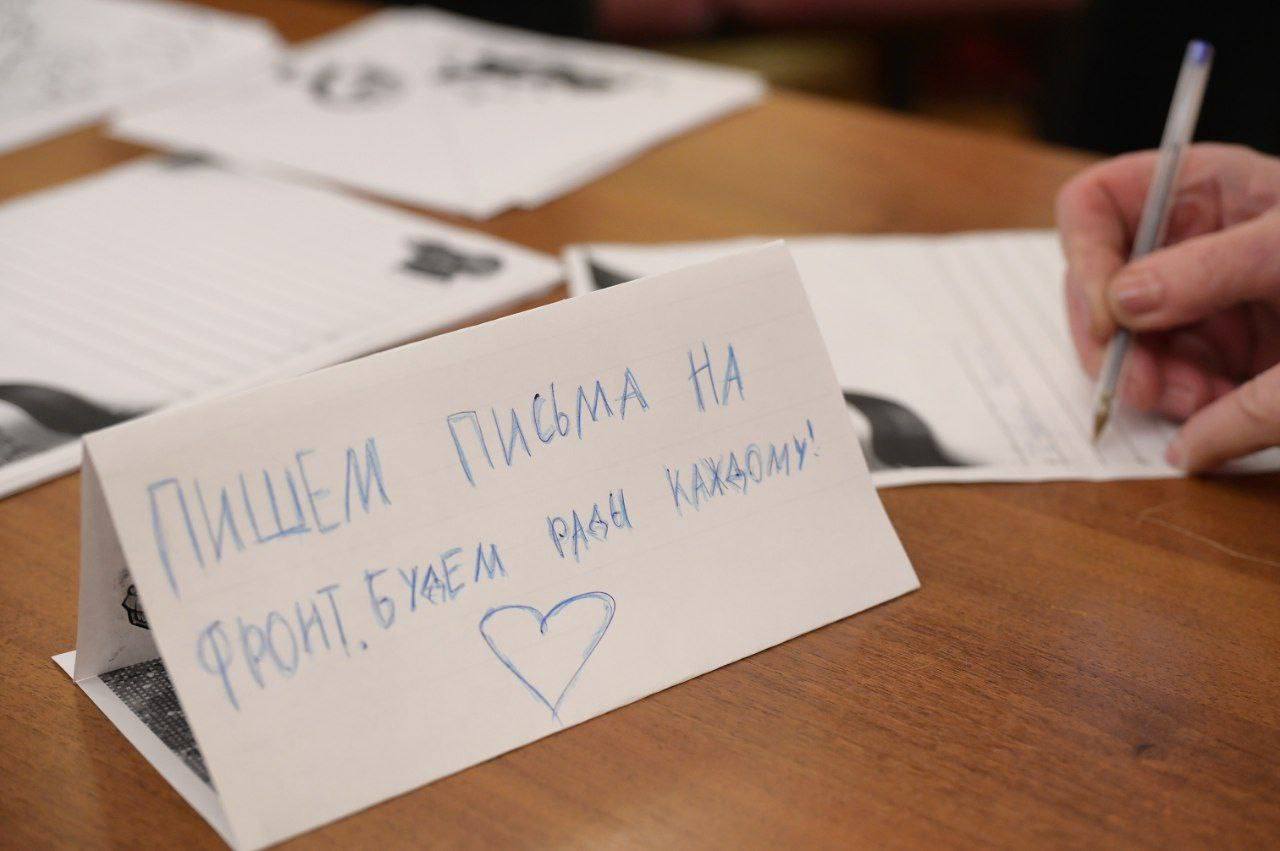 ПИШЕМ ПИСЬМА НА
ФРОНТ. БУДЕМ РАДЫ КАЖДОМУ!